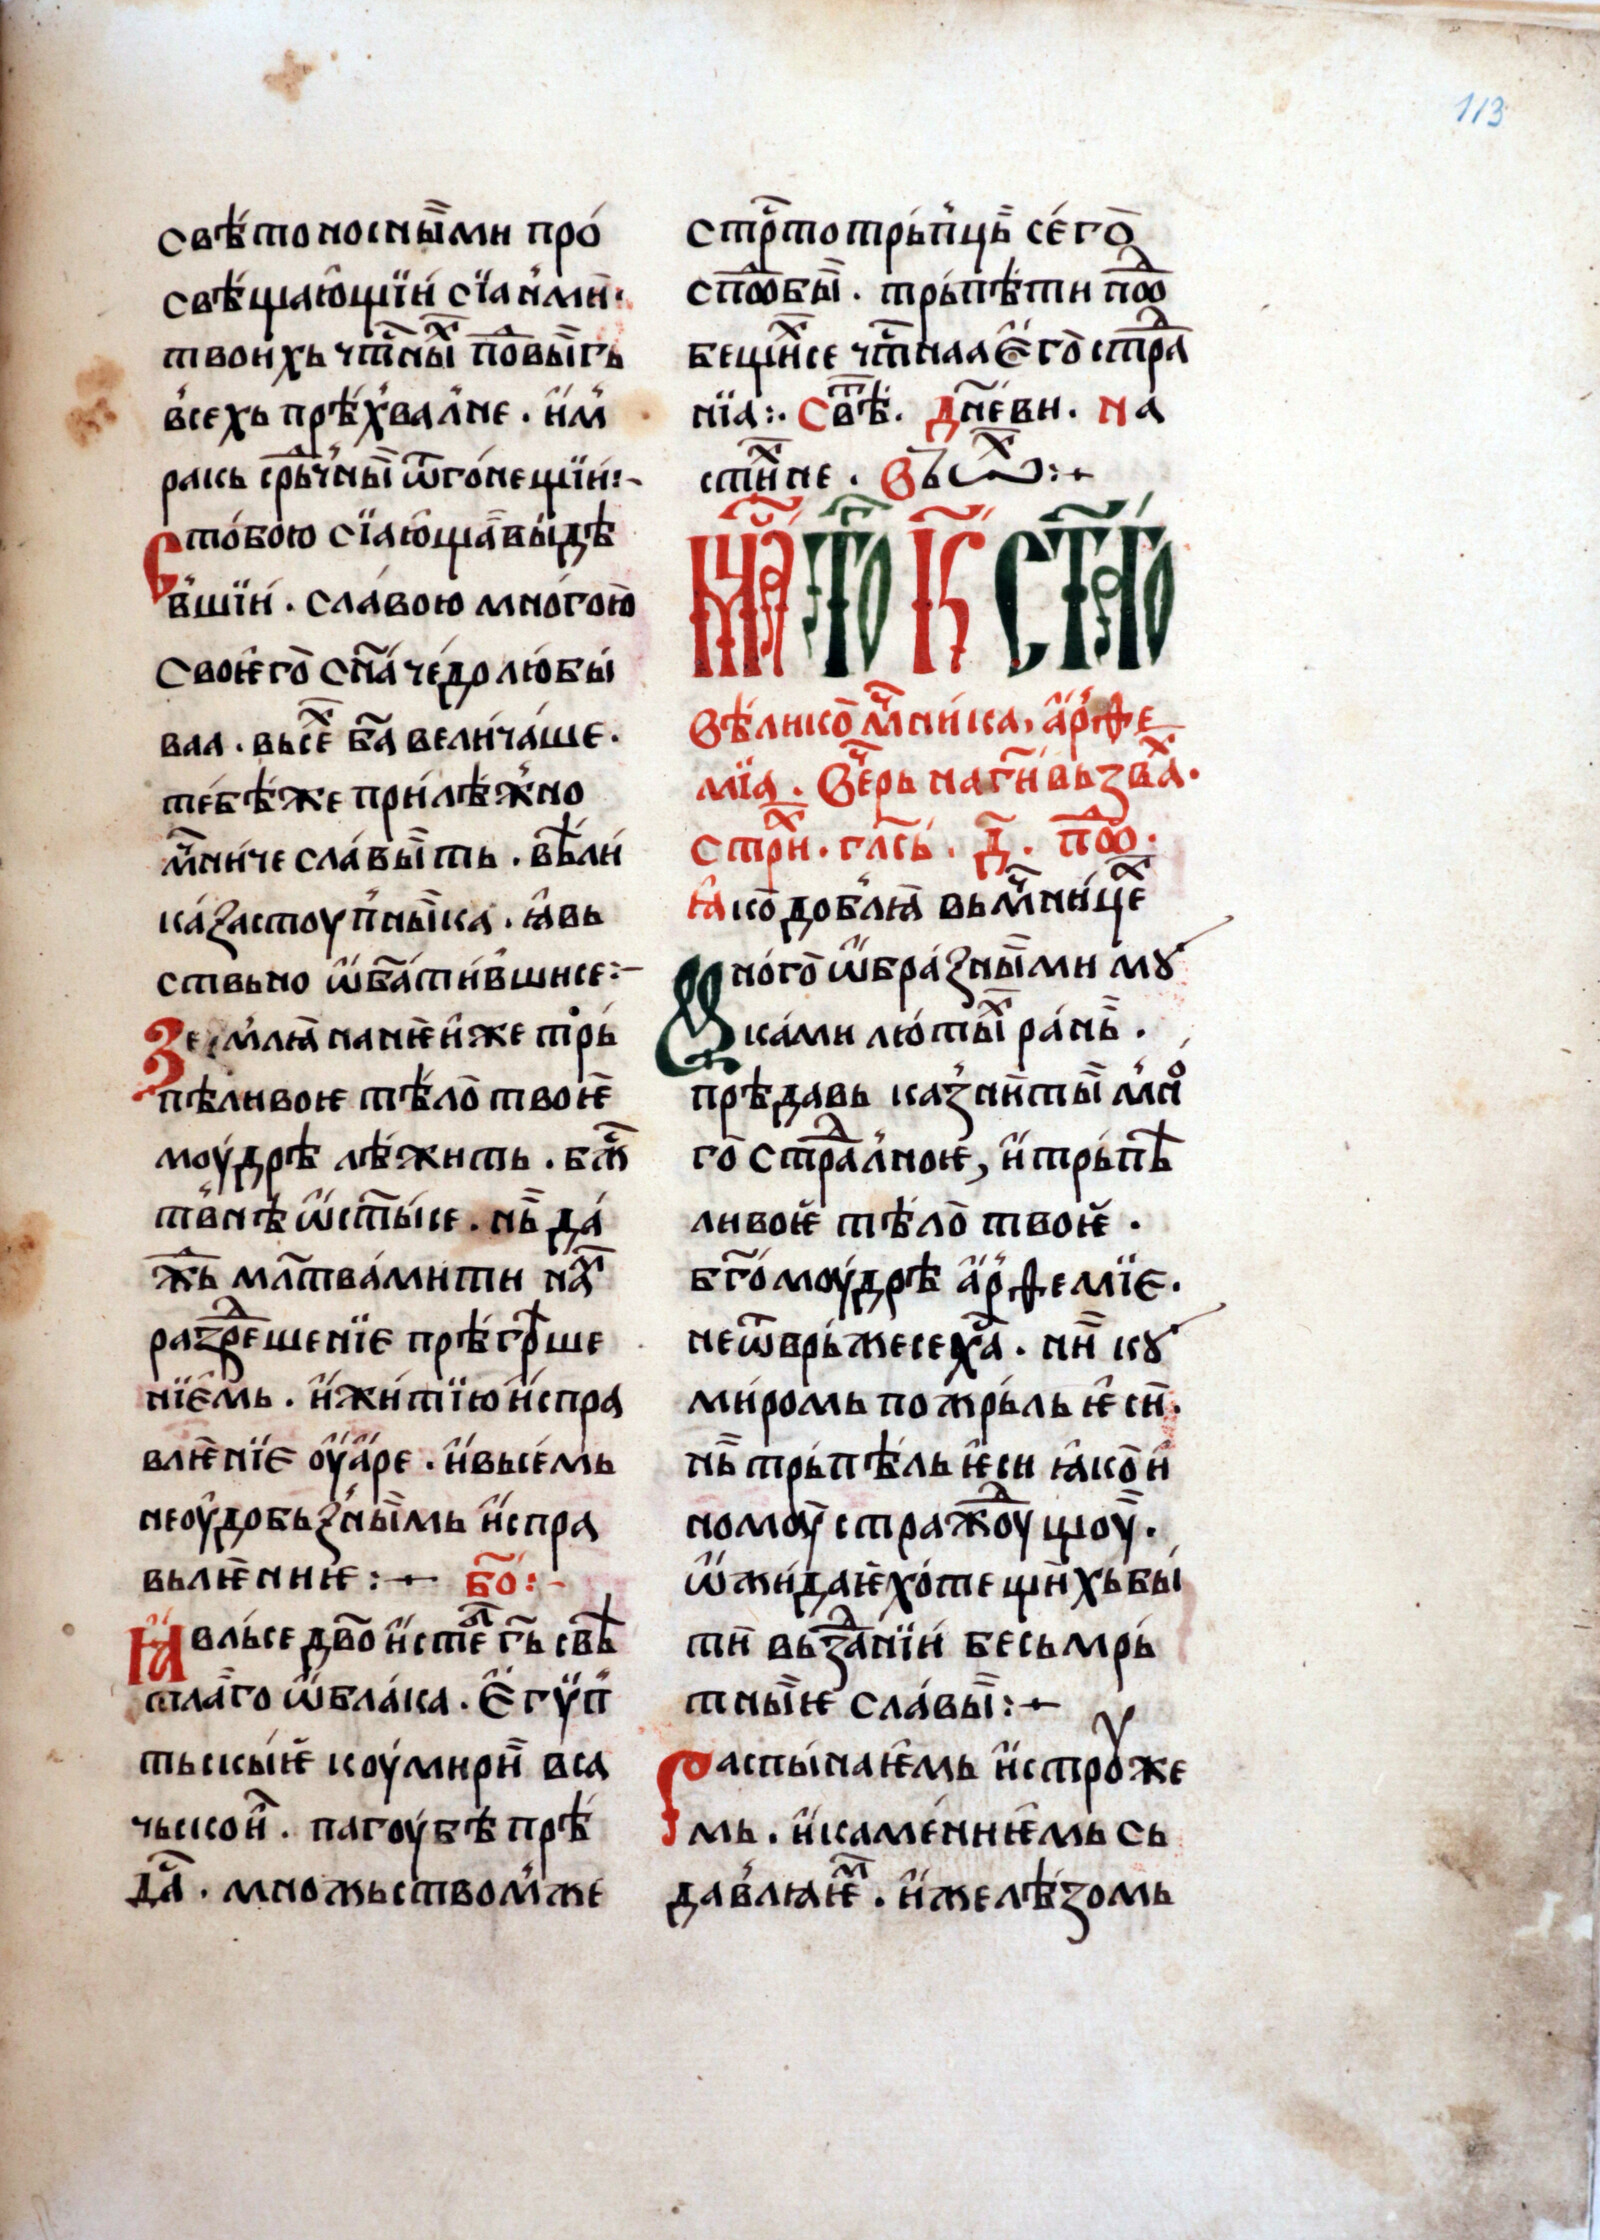 113
свѣтоносны̏ми про́
свѣщаю̂щїи́ сїа́н҆ми̏.
твои́хь чт҃ны̏ⷯ по̂вы̏гь
в҆сехь прѣ́х҆вал҆не . и҆̂м҆
ракь срⷣьч҆ны̏ ѿго́нещїи́:~
Сто́бою сїа́ю̂ща̏ вы́дѣ
в҆шїи́ . сла́вою мно́гою̏
своѥ̂го̏ сп҃а́ че́до лю́бы́
ваа . высе̏ⷯ б҃а вели́ча́ше .
те́бѣ́ же при́лѣ́ж҆но
мⷱ҇ни́че сла́вы̏ть . вѣ́ли́
ка́заступ҆ны̏ка . ꙗ̂вь
ствьно ѡ҆̂б҃ати́в҆шисе:~
Зем҆лꙗ̏ на нѥ̏ и҆̂же трь́
пѣ́ливоѥ тѣ́ло̏ твоѥ̏
моу́дрѣ лѣ́жить . бжⷭ҇
тв҆нѣ ѡ҆̂ст҃ы́исе . нь̏ да́
жⷣь мл҃тва́мити на̏ⷨ
разⷣре̏шенїе прѣ́грѣ́ше
нїе̂мь . и҆̂жи́тїю и҆̂спра
влѥ̏нїе ѹ҆̂а҆̂ре . и҆̂высе́мь
неѹ̂добьз҆ны̏мь и҆̂спра
вьлѥ̏ниѥ :~ б҃о́:~
Ꙗ̂вль́се дв҃о и҆̂сте̏ⷧ г҃ь свѣ́
тла̏го ѡ҆̂бла́ка . е҆̂гѵ̈п҆
тьскы́ѥ̏ коу́мири̏ вса
чьскои̂ . пагоу́бѣ́ прѣ́
да̏ⷭ . множьством҆же
стрⷭ҇тотрь́п҆ць̏ се́го̏
спо̂ⷣбы̏ . трь́пѣ́ти по̂ⷣ
бещи̏ⷯсе чт҃наа е҆̂го̏ страⷣ
нїа:. Свⷮѣ́ . дн҃еви . на
сти̏ⷯне . Въ ⷯ:~
мⷭ҇ца то̂ к҃ ст҃го
Вѣ́лико̏ мⷱ҇ни́ка, а҆̂р҆ѳе
мїа . Вⷱе́рь на г҃и́ вьзва̏ⷯ.
стⷯри́ . гл҃сь́ . д҃ . по̂ⷣ .
ꙗ̂ко̏ до́б҆лꙗ̏ вь мⷱ҇ни́це̏ⷯ
Мно́го̏ ѡ҆̂бра́зны̏ми мꙋ
ка́ми лю́ты̏ⷯ ра́нь̏ .
прѣ́давь каз҆ни̏ты̏ м҆ноⷢ
го̏ страⷣл҆ноѥ, и҆̂трь́пѣ́
ливоѥ̏ тѣ́ло̏ твоѥ̏ .
б҃го́моу́дрѣ а҆̂р҆ѳемїе .
неѿврь́жесе х҃а . ни̏ кꙋ
ми́ромь пожрь́ль ѥ̂си̏.
нь̏ трь́пѣ́ль ѥ̂си ꙗ̂ко̏ и̂
номоу̏ стражⷣоу̂щоу̏ .
ѡ҆̂жи́даѥ̏ хо́тещи̏хь бы́
ти̏ вь́зⷣа̏нїи́ бесьмрь́
тны̏ѥ сла́вы̏ :~
Распы́наѥ̂мь и҆̂строу́же
мь . и҆̂каме́ниѥ̂мь сь
да́в҆лꙗѥ̏ⷨ . и҆̂желѣ́зомь